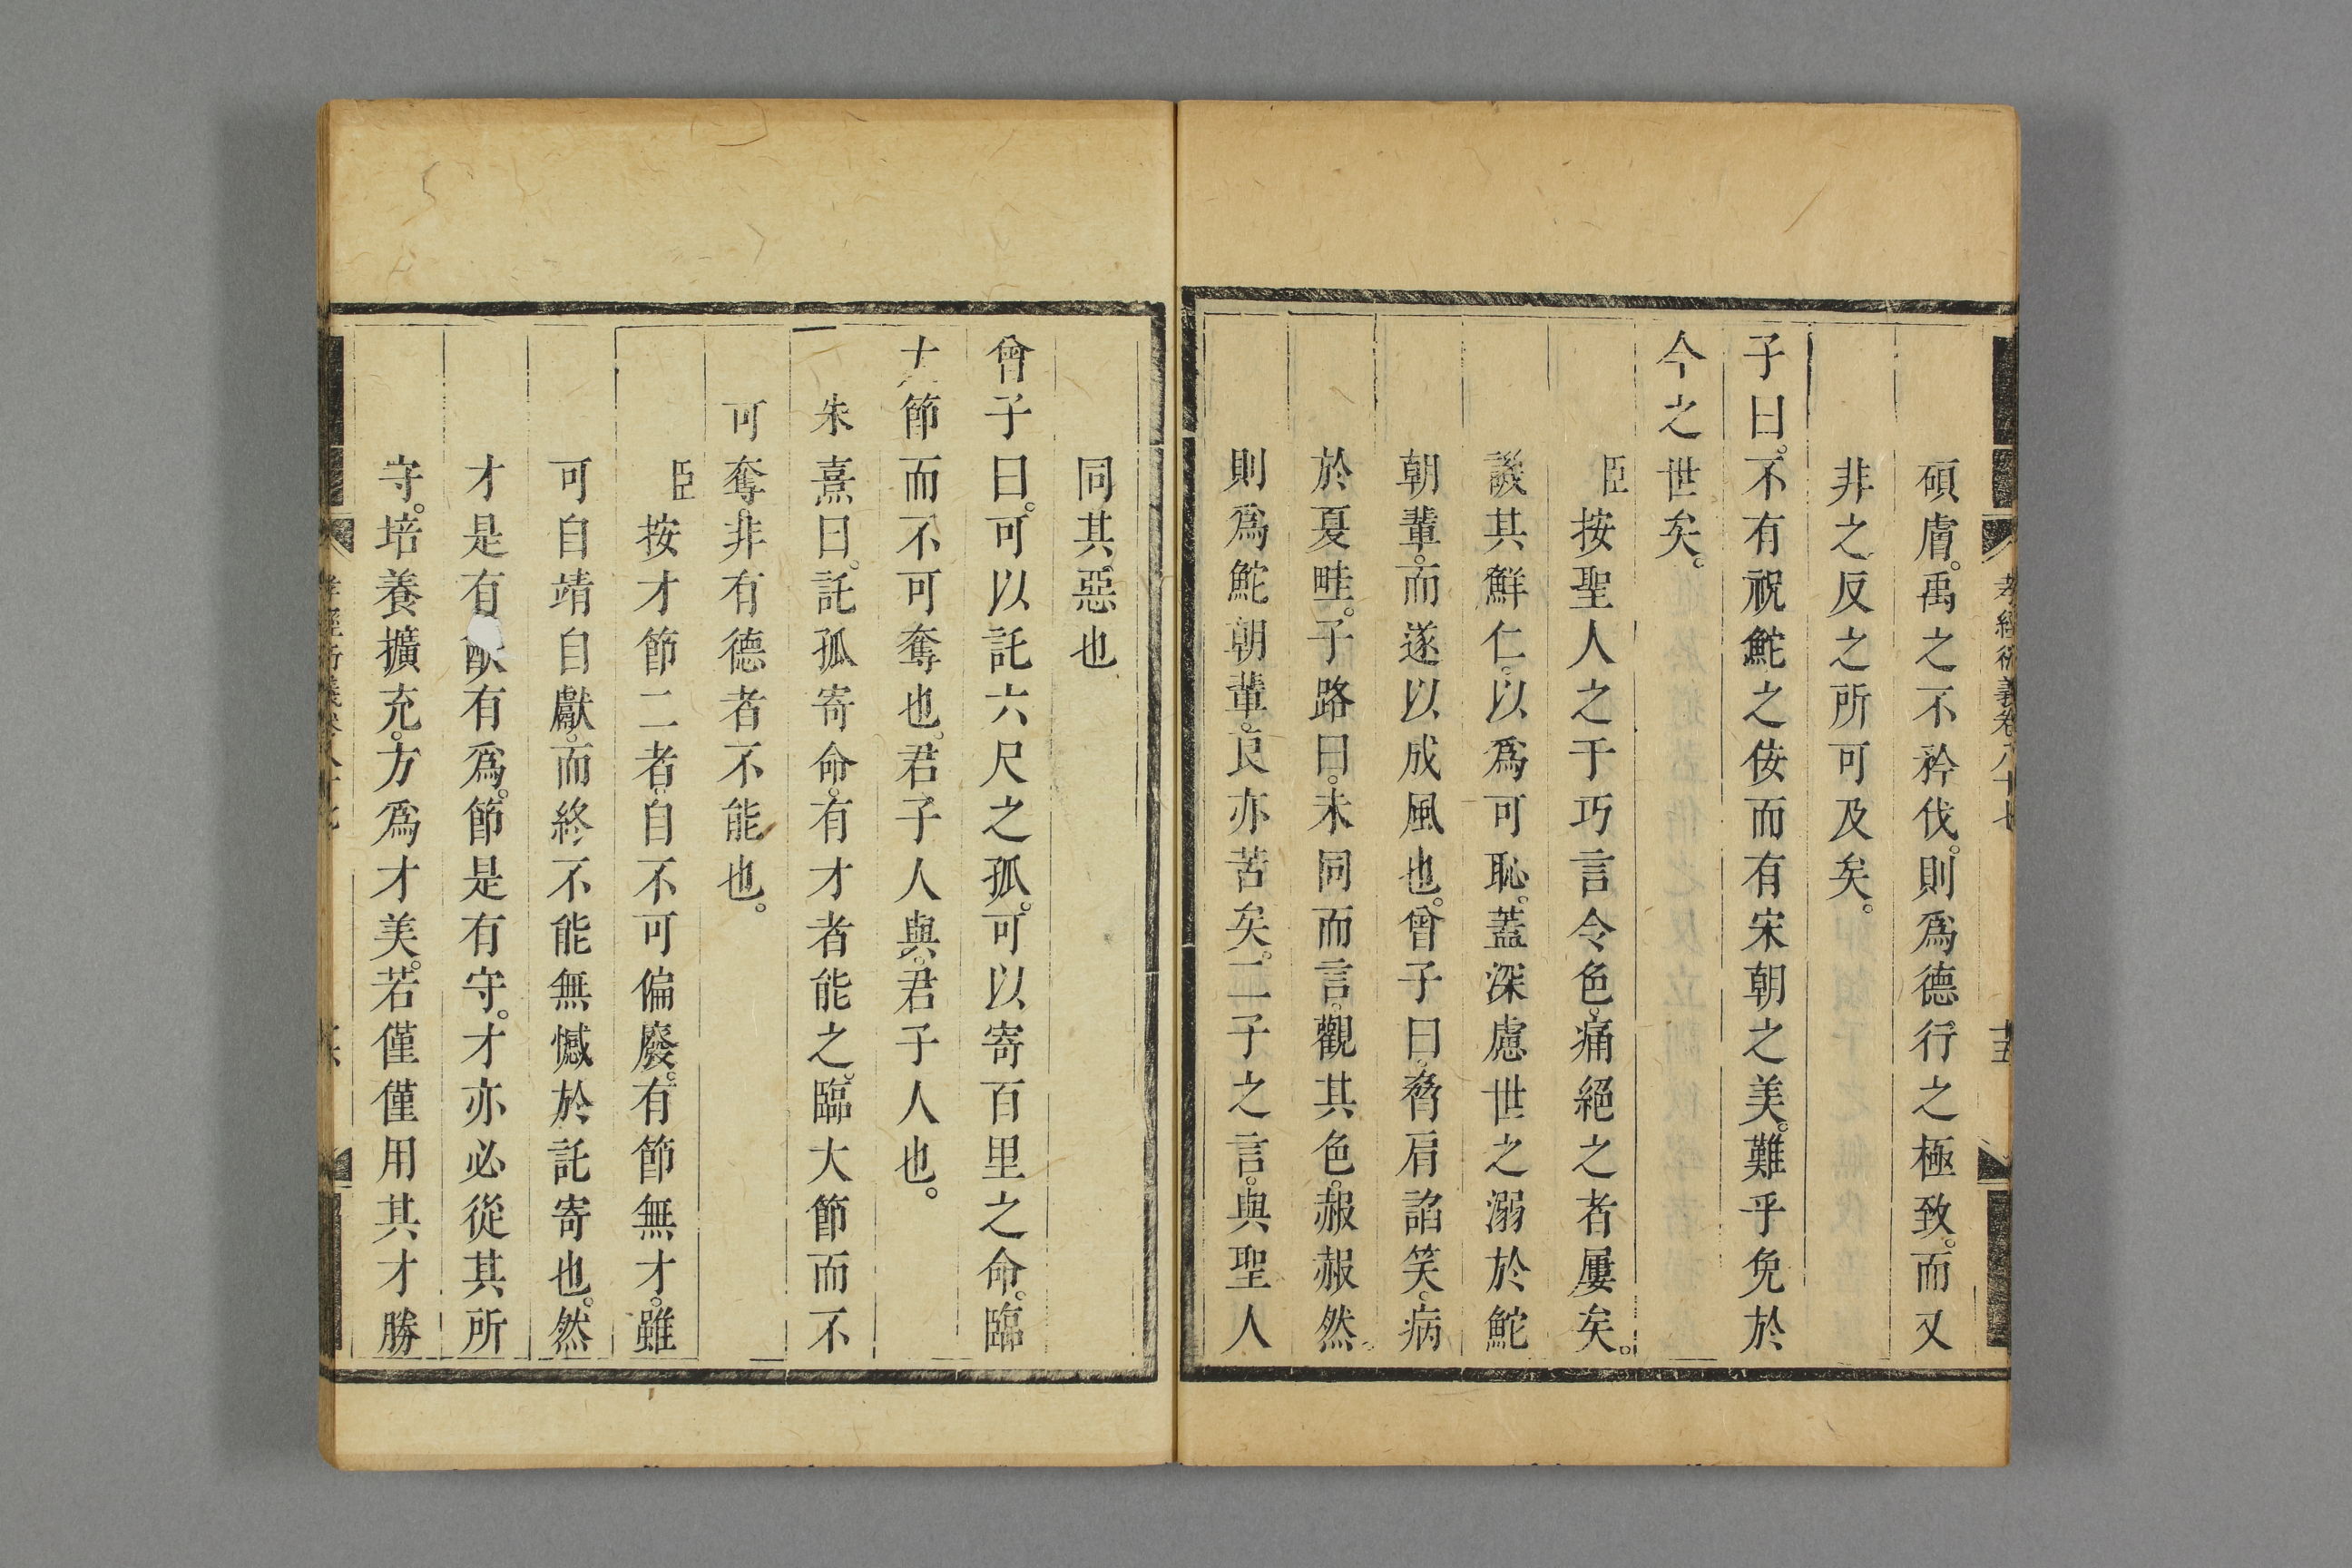 碩膚。禹之不矜伐。則爲德行之極致。而又
非之反之所可及矣。
子曰。不有祝鮀之佞而有宋朝之美。難乎免於
今之世矣。
臣按聖人之于巧言令色。痛絕之者屢矣。
譏其鮮仁。以爲可恥。蓋深慮世之溺於鮀
朝輩。而遂以成風也。曾子曰。脅肩諂笑。病
於夏畦。子路曰。未同而言。觀其色。赧赧然。
則爲鮀朝輩。良亦苦矣。二子之言。與聖人
同其惡也
曾子曰。可以託六尺之孤。可以寄百里之命。臨
大節而不可奪也。君子人與。君子人也。
朱熹曰。託孤寄命。有才者能之。臨大節而不
可奪。非有德者不能也。
臣按才節二者。自不可偏廢。有節無才。雖
可自靖自獻。而終不能無憾於託寄也。然
才是有猷有爲。節是有守。才亦必從其所
守。培養擴充。方爲才美。若僅僅用其才勝
孝經衍義卷八十七
十五